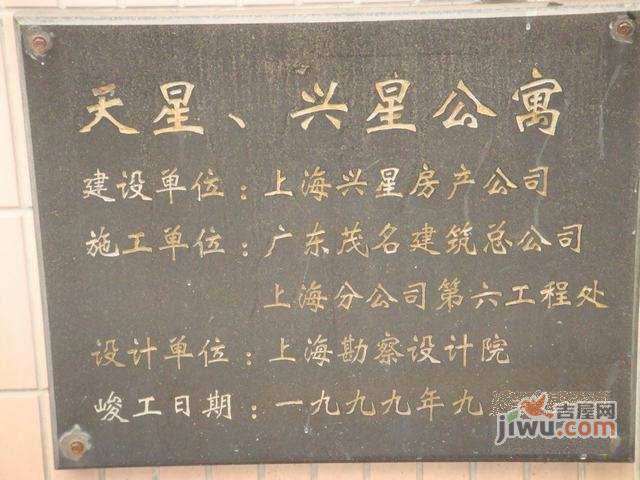 天星、兴星公寓
建设单位：上海兴星房产公司
施工单位：广东茂名建筑总公司
上海分公司第六工程处
设计单位：上海勘察设计院
峻工日期：一九九九年九
吉屋网
jiwu.com